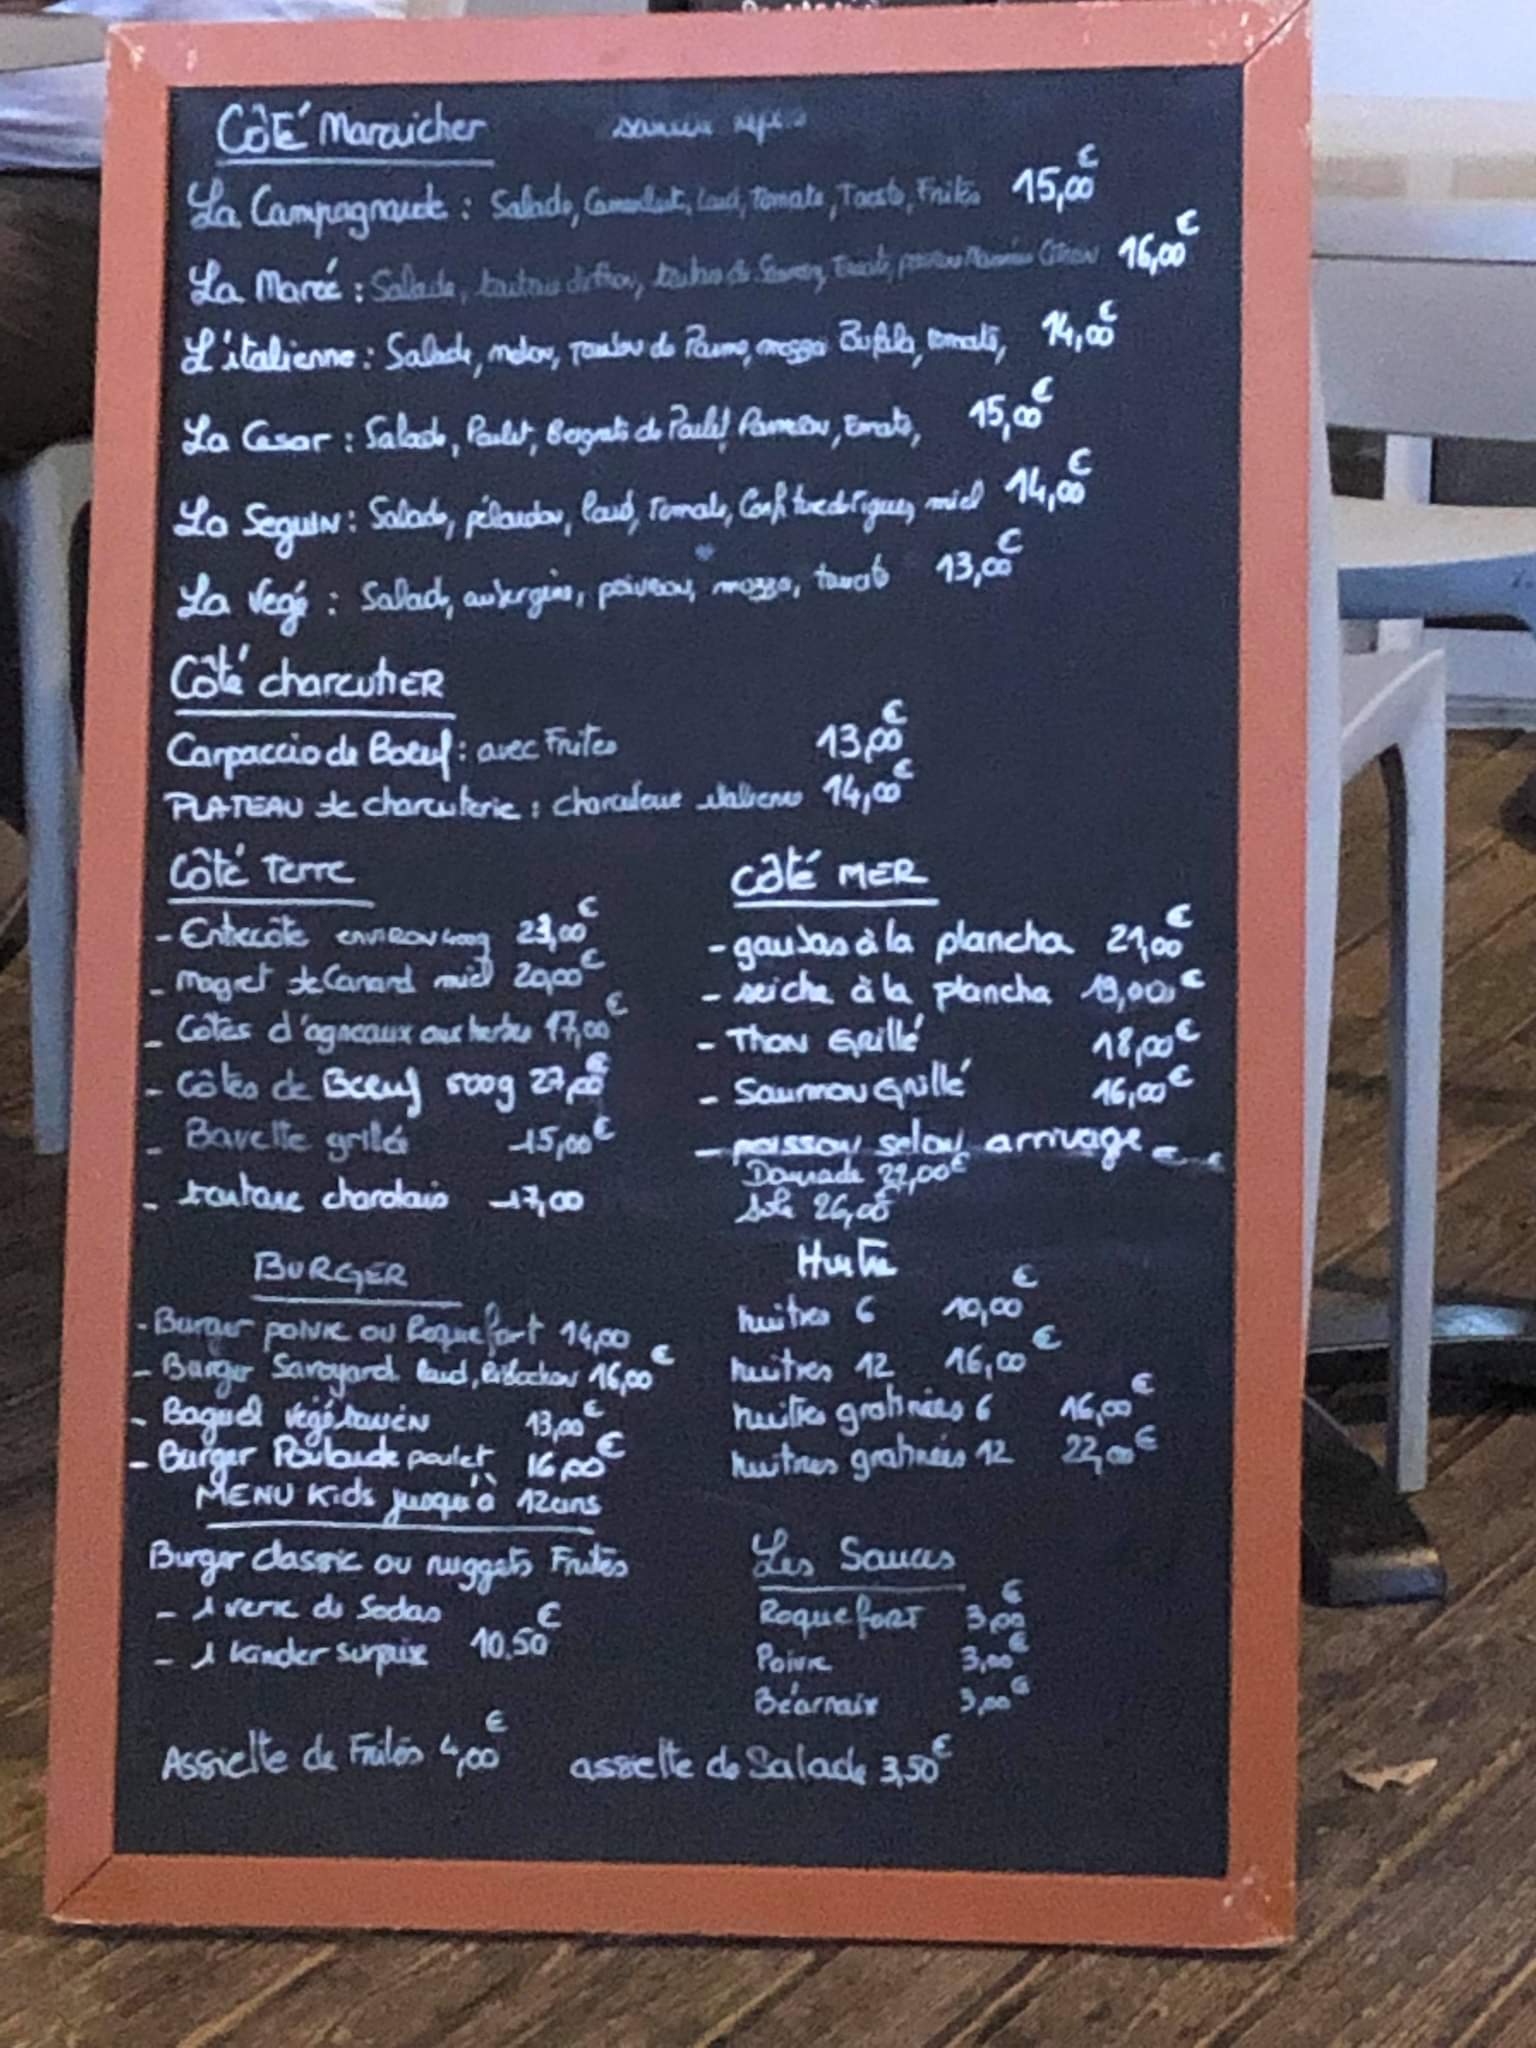 CÔTÉ Maraicher
La Campagnarde : Salade, Camembert, Lard, Tomate, Toasts, Frites 15,00€
La Marée : Salade, de thon, de Saumon, Citron 16,00€
L'italienne : Salade, melon, Jambon de Parme, mozza Bufala, tomate, 14,00€
La Cesar : Salade, Poulet, Beignets de Poulet Parmesan, tomate, 15,00€
La Seguin : Salade, pélardon, lard, Tomate, Confiture de figues, miel 14,00€
La Vegé : Salade, aubergine, poivron, mozza, tomate 13,00€
Côté charcutiER
Carpaccio de Boeuf : avec Frites 13,00€
PLATEAU de charcuterie : charcuterie italienne 14,00€
Côté Terre
- Entrecôte ENVIRON 400g 23,00€
- magret de Canard miel 20,00€
- Côtes d'agneaux aux herbes 17,00€
- Côtes de Bœuf 500g 27,00€
- Bavette grillée 15,00€
- tartare charolais 17,00
Côté MER
- gambas à la plancha 21,00€
- seiche à la plancha 19,00€
- THON Grillé 18,00€
- Saumon Grillé 16,00€
- poisson selon arrivage €
Daurade 22,00€
sole 26,00€
BURGER
- Burger poivre ou Roquefort 14,00
- Burger Savoyard lard, Reblochon 16,00€
- Baguel végétarien 13,00€
- Burger Poularde poulet 16,00€
MENU Kids jusqu'à 12ans
Burger classic ou nuggets Frites
- 1 verre de Sodas
- 1 kinder surprise 10.50€
Huitre
huitres 6 10,00€
huitres 12 16,00€
huitres gratinées 6 16,00€
huitres gratinées 12 22,00€
Les Sauces
Roquefort 3,00€
Poivre 3,00€
Béarnaix 3,00€
Assiette de Frites 4,00€ assiette de Salade 3,50€